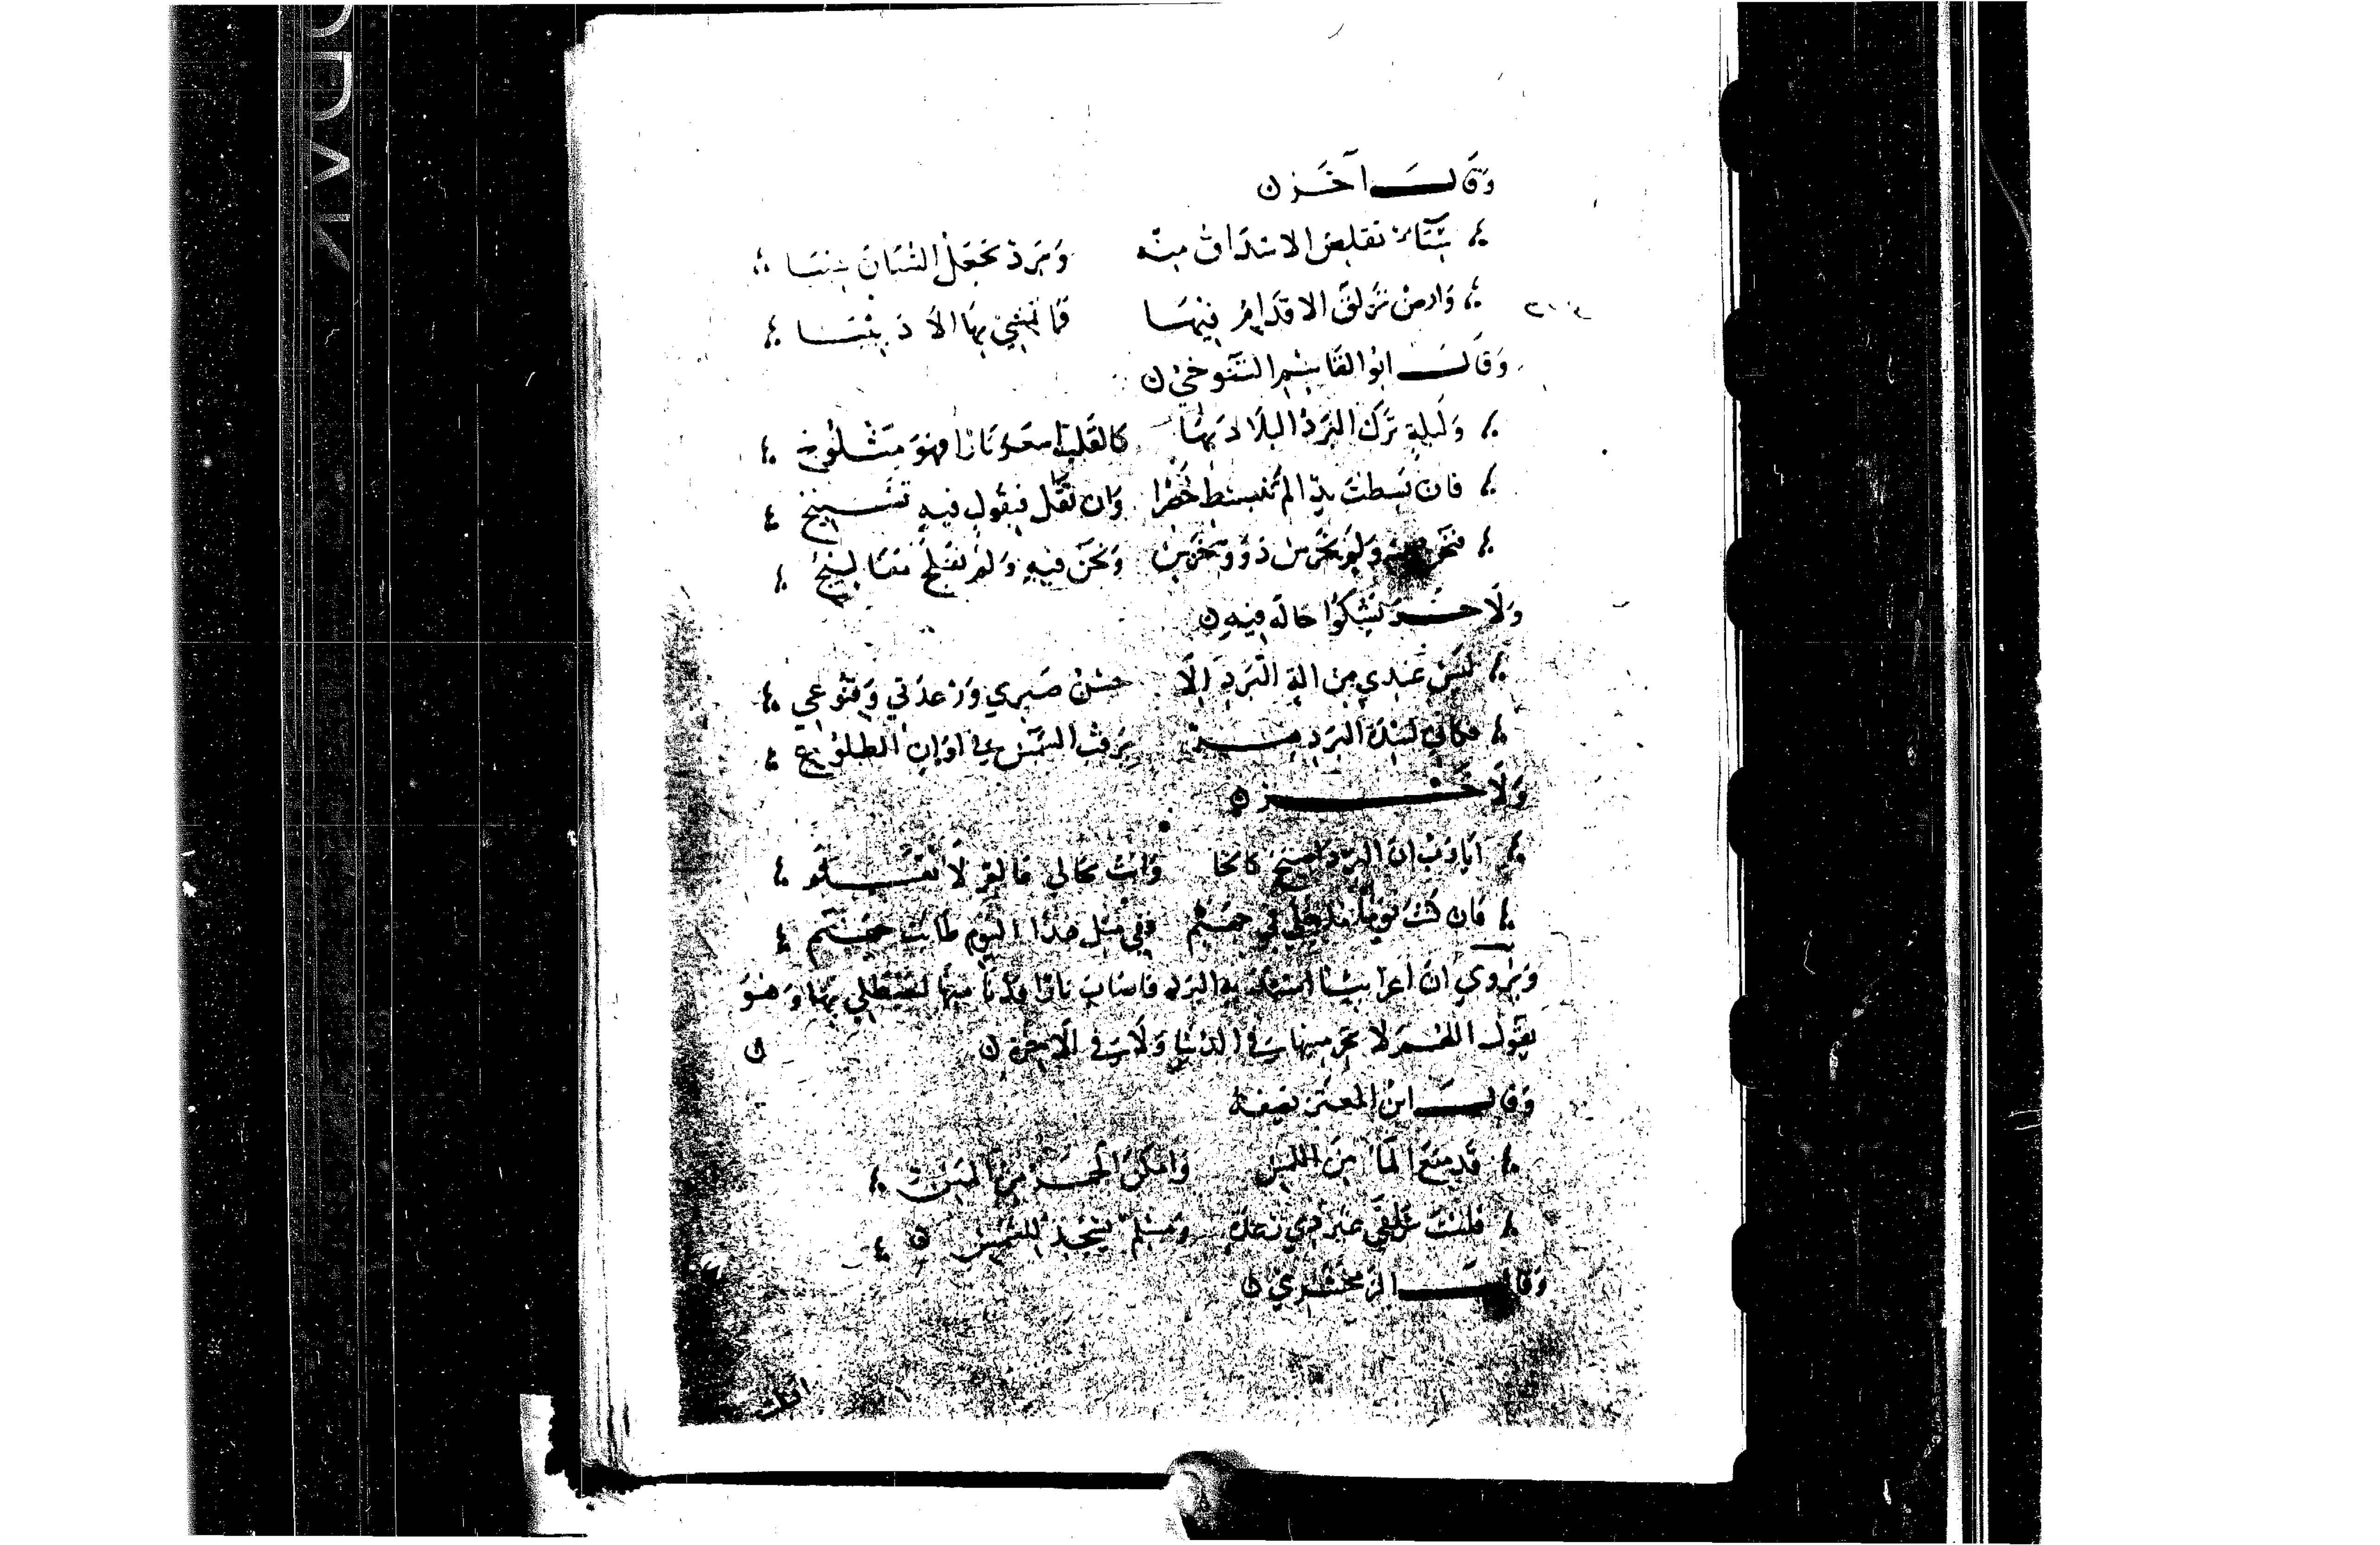 وقال آخر ن
شتاء تقلص الاشداق منه وبرد تجعل الشبان شيبا
وارض تزلق الاقدام فيها فما تمشي بها الا دبيبا
وقال ابو القاسم التنوخي ن
وليلة ترك البرد البلاد بها كالقلب اسعر نارا فهو مثلوج
فان بسطت يدا لم تنبسط خصرا وان تقل فبقول فيه تشبيج
فنحن منه ولم نخرس ذوو خرس ونحن فيه ولم نفلج مفاليج
ولاخر يشكوا حاله فيه ن
ليس عندي من الة البرد الا حسن صبري ورعدتي وقنوعي
فكاني لشدة البرد هر يرقب الشمس في اوان الطلوع
ولاخر ن
ايا رب ان البرد اصبح كالحا وانت بحالي عالم لا تعلم
فان كنت يوما مدخلي في جهنم ففي مثل هذا اليوم طابت جهنم
ويروي ان اعرابيا اشتد به البرد فاصاب نارا فدنا منها ليصطلي بها وهو
يقول اللهم لا تحرمنيها في الدنيا ولا في الاخرة ن
وقال ابن المعتز يصفه
قد منع الماء من اللمس وامكن الجمر من المس
فلست تلقى غير ذي رعدة ومسلم يسجد للشمس ن
وقال الزمخشري ن